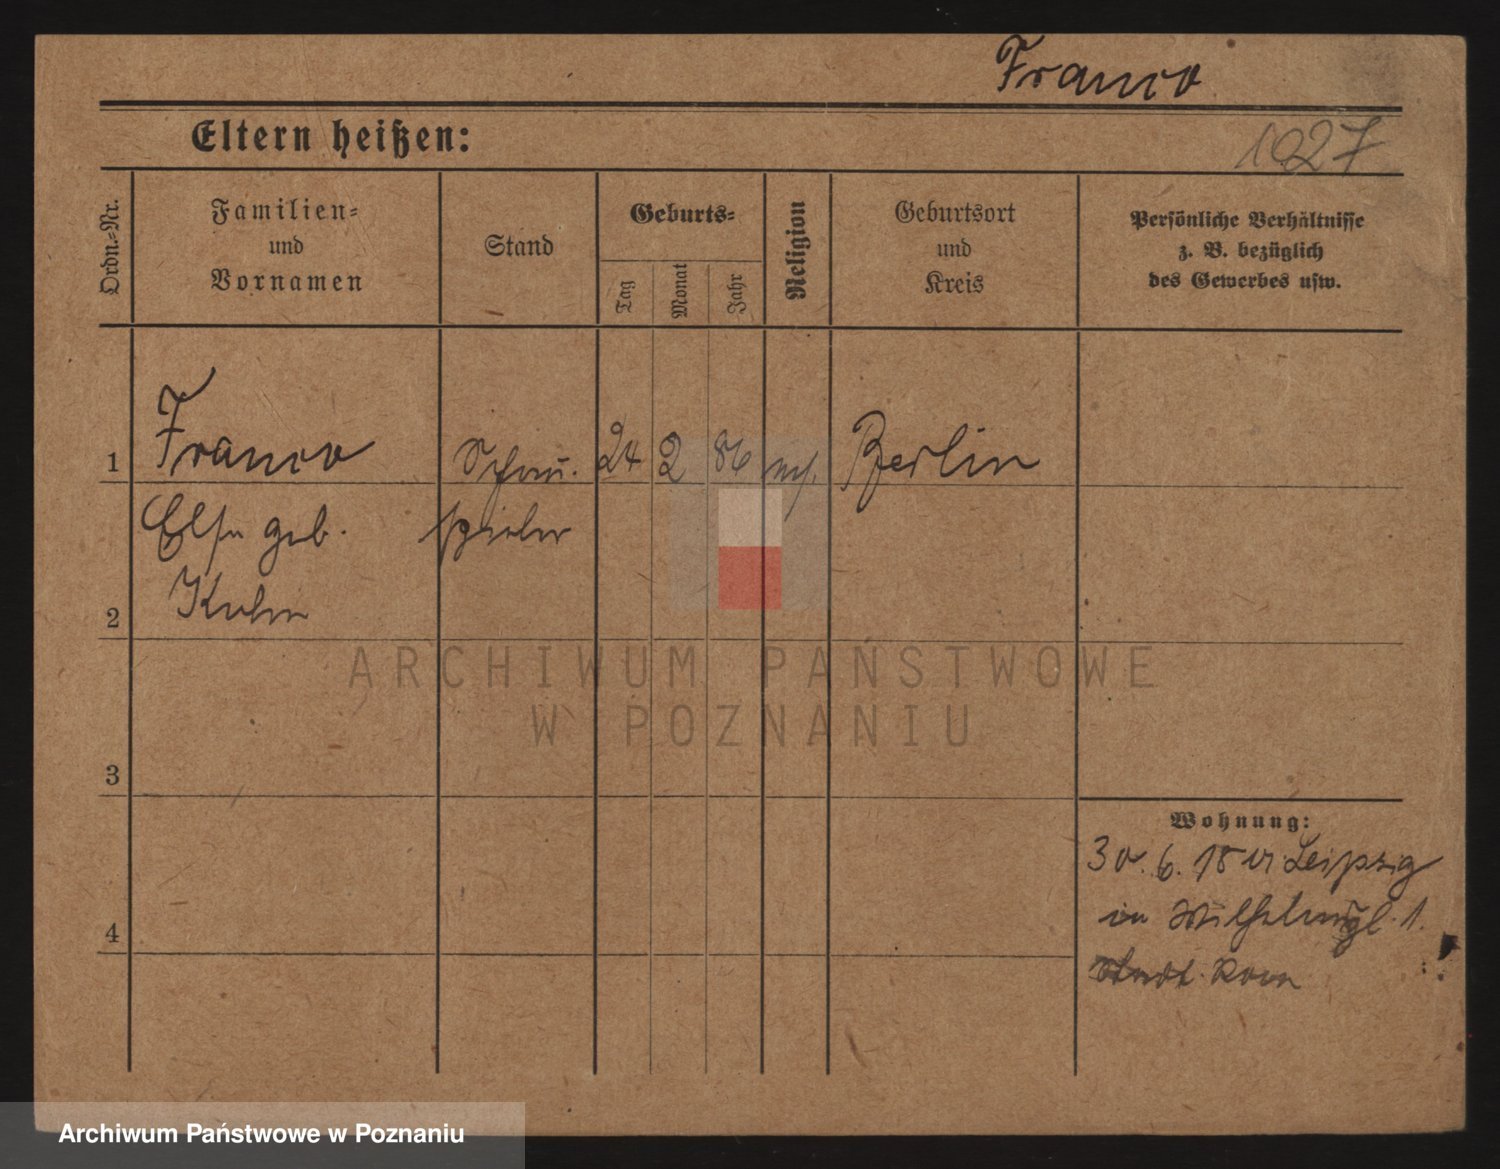 Franco
Eltern heißen:
1027
Ordn.-Nr.
Familien-
und
Vornamen
Stand
Geburts-
Tag
Monat
Jahr
Religion
Geburtsort
und
Kreis
Persönliche Verhältnisse
z. B. bezüglich
des Gewerbes usw.
1
Franco
Schau-
24
2
86
Berlin
Else geb.
spieler
2
3
Wohnung:
30. 6. 18 v. Leipzig
in 1.
4
ARCHIWUM PAŃSTWOWE
W POZNANIU
Archiwum Państwowe w Poznaniu